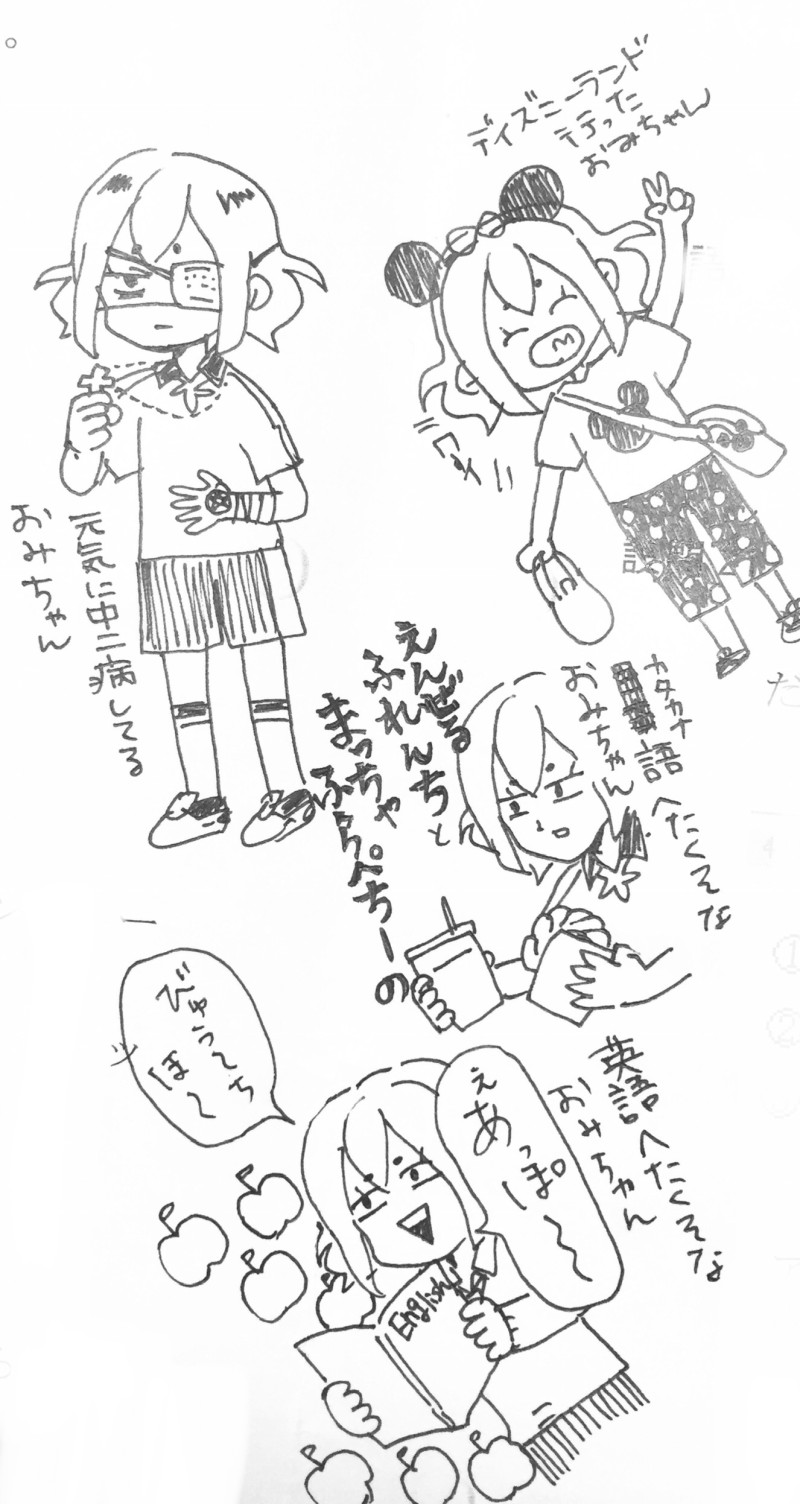 ディズニーランド
行った
おみちゃん
元気に中二病してる
おみちゃん
カタカナ
語へたくそな
おみちゃん
えんぜる
ふれんちと
まっちゃ
ふらぺちーの
英語へたくそな
おみちゃん
ぇ
あっぽ〜
びゅう〜ち
ほ〜
English